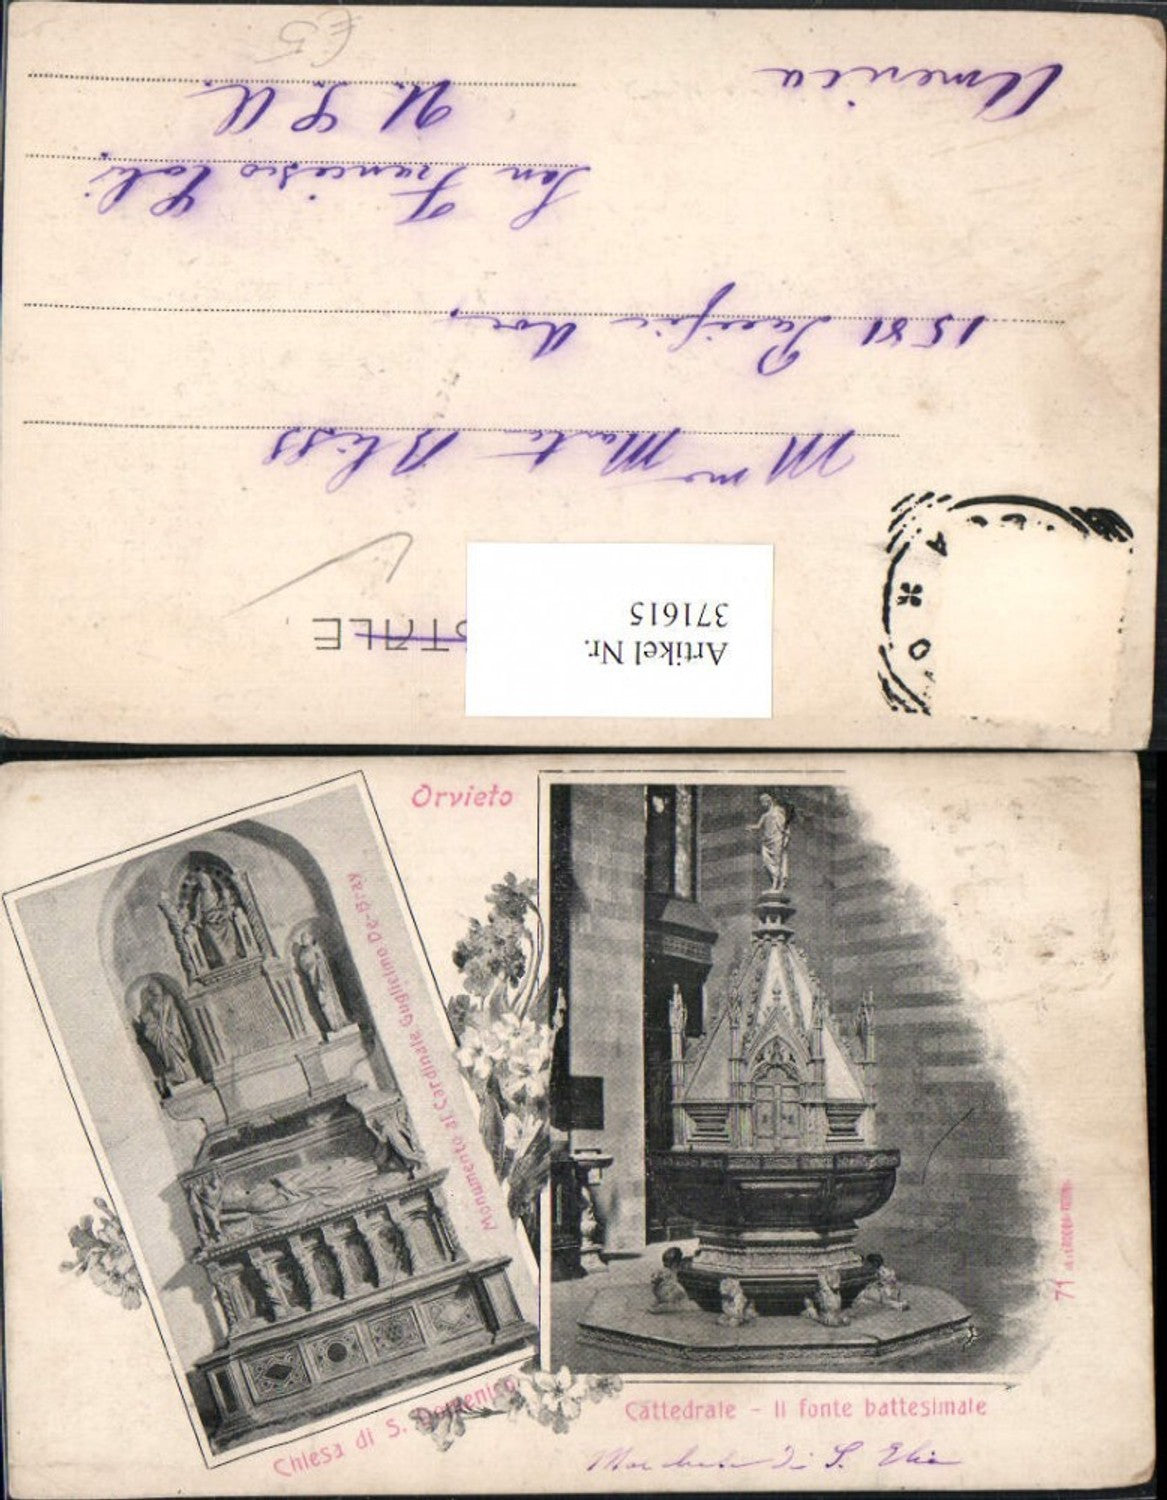 Artikel Nr.
371615
STALE
Mme Marta Bliss
1581 Pacific Ave,
San Francisco Cali
U. S. A.
America
£5
Orvieto
Monumento al Cardinale Guglielmo De-Bray
Chiesa di S. Domenico
Cattedrale - Il fonte battesimale
di S. Elia
71